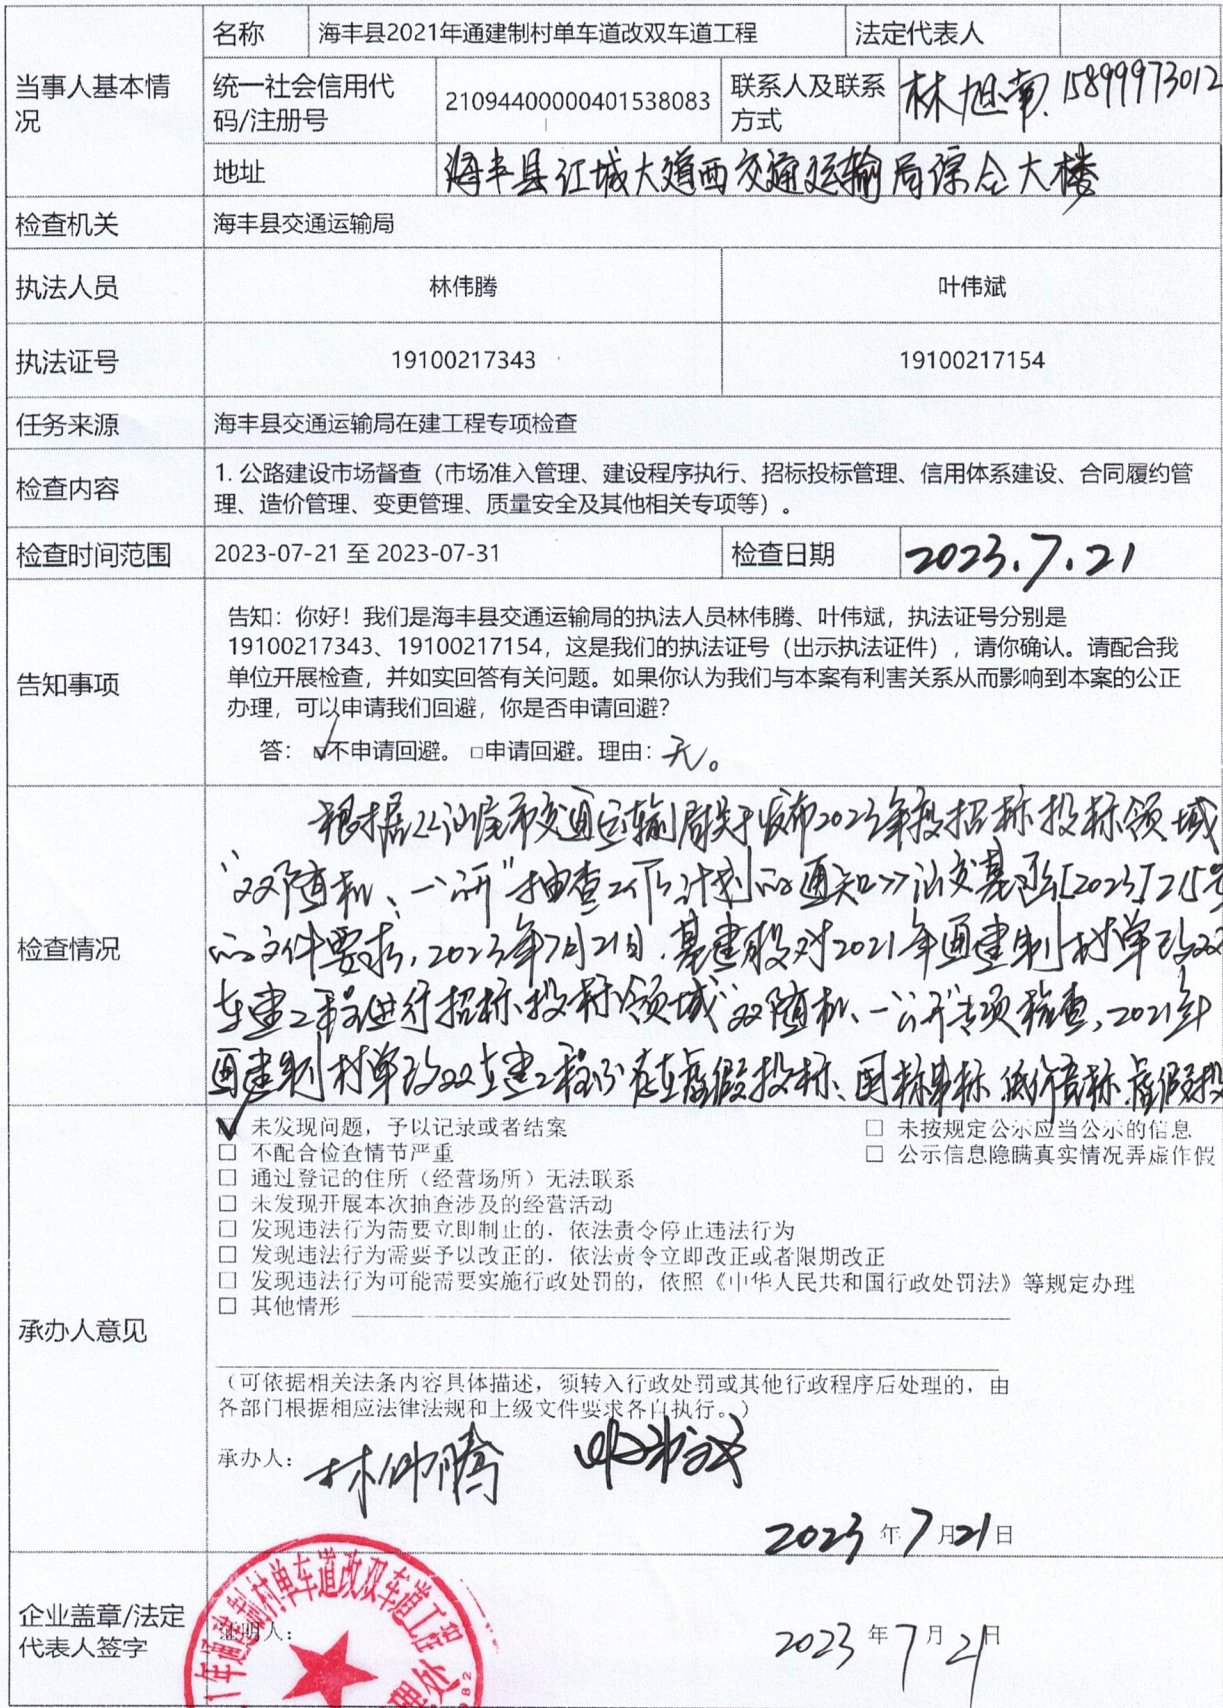 当事人基本情况
名称 海丰县2021年通建制村单车道改双车道工程 法定代表人
统一社会信用代码/注册号 21094400000401538083 联系人及联系方式 林旭南 15899973012
地址 海丰县红城大道西交通运输局综合大楼
检查机关 海丰县交通运输局
执法人员 林伟腾 叶伟斌
执法证号 19100217343 19100217154
任务来源 海丰县交通运输局在建工程专项检查
检查内容 1. 公路建设市场督查（市场准入管理、建设程序执行、招标投标管理、信用体系建设、合同履约管
理、造价管理、变更管理、质量安全及其他相关专项等）。
检查时间范围 2023-07-21 至 2023-07-31 检查日期 2023.7.21
告知事项
告知：你好！我们是海丰县交通运输局的执法人员林伟腾、叶伟斌，执法证号分别是
19100217343、19100217154，这是我们的执法证号（出示执法证件），请你确认。请配合我
单位开展检查，并如实回答有关问题。如果你认为我们与本案有利害关系从而影响到本案的公正
办理，可以申请我们回避，你是否申请回避？
答：☑不申请回避。□申请回避。理由：无。
检查情况
根据《汕尾市交通运输局关于发布2023年投招标投标领域
“双随机、一公开”抽查工作计划的通知》汕交基函[2023]215号
的文件要求，2023年7月21日，基建股对2021年通建制村单改双
车道工程进行招标投标领域“双随机、一公开”专项检查，2021年
通建制村单改双车道工程不存在虚假投标、围标串标、低价竞标、虚假投
承办人意见
☑ 未发现问题，予以记录或者结案 □ 未按规定公示应当公示的信息
□ 不配合检查情节严重 □ 公示信息隐瞒真实情况弄虚作假
□ 通过登记的住所（经营场所）无法联系
□ 未发现开展本次抽查涉及的经营活动
□ 发现违法行为需要立即制止的，依法责令停止违法行为
□ 发现违法行为需要予以改正的，依法责令立即改正或者限期改正
□ 发现违法行为可能需要实施行政处罚的，依照《中华人民共和国行政处罚法》等规定办理
□ 其他情形
（可依据相关法条内容具体描述，须转入行政处罚或其他行政程序后处理的，由
各部门根据相应法律法规和上级文件要求各自执行。）
承办人：林伟腾 叶伟斌
2023 年 7 月 21 日
企业盖章/法定代表人签字
证明人：
2023 年 7 月 21 日
1年通建制村单车道改双车道工程
理处